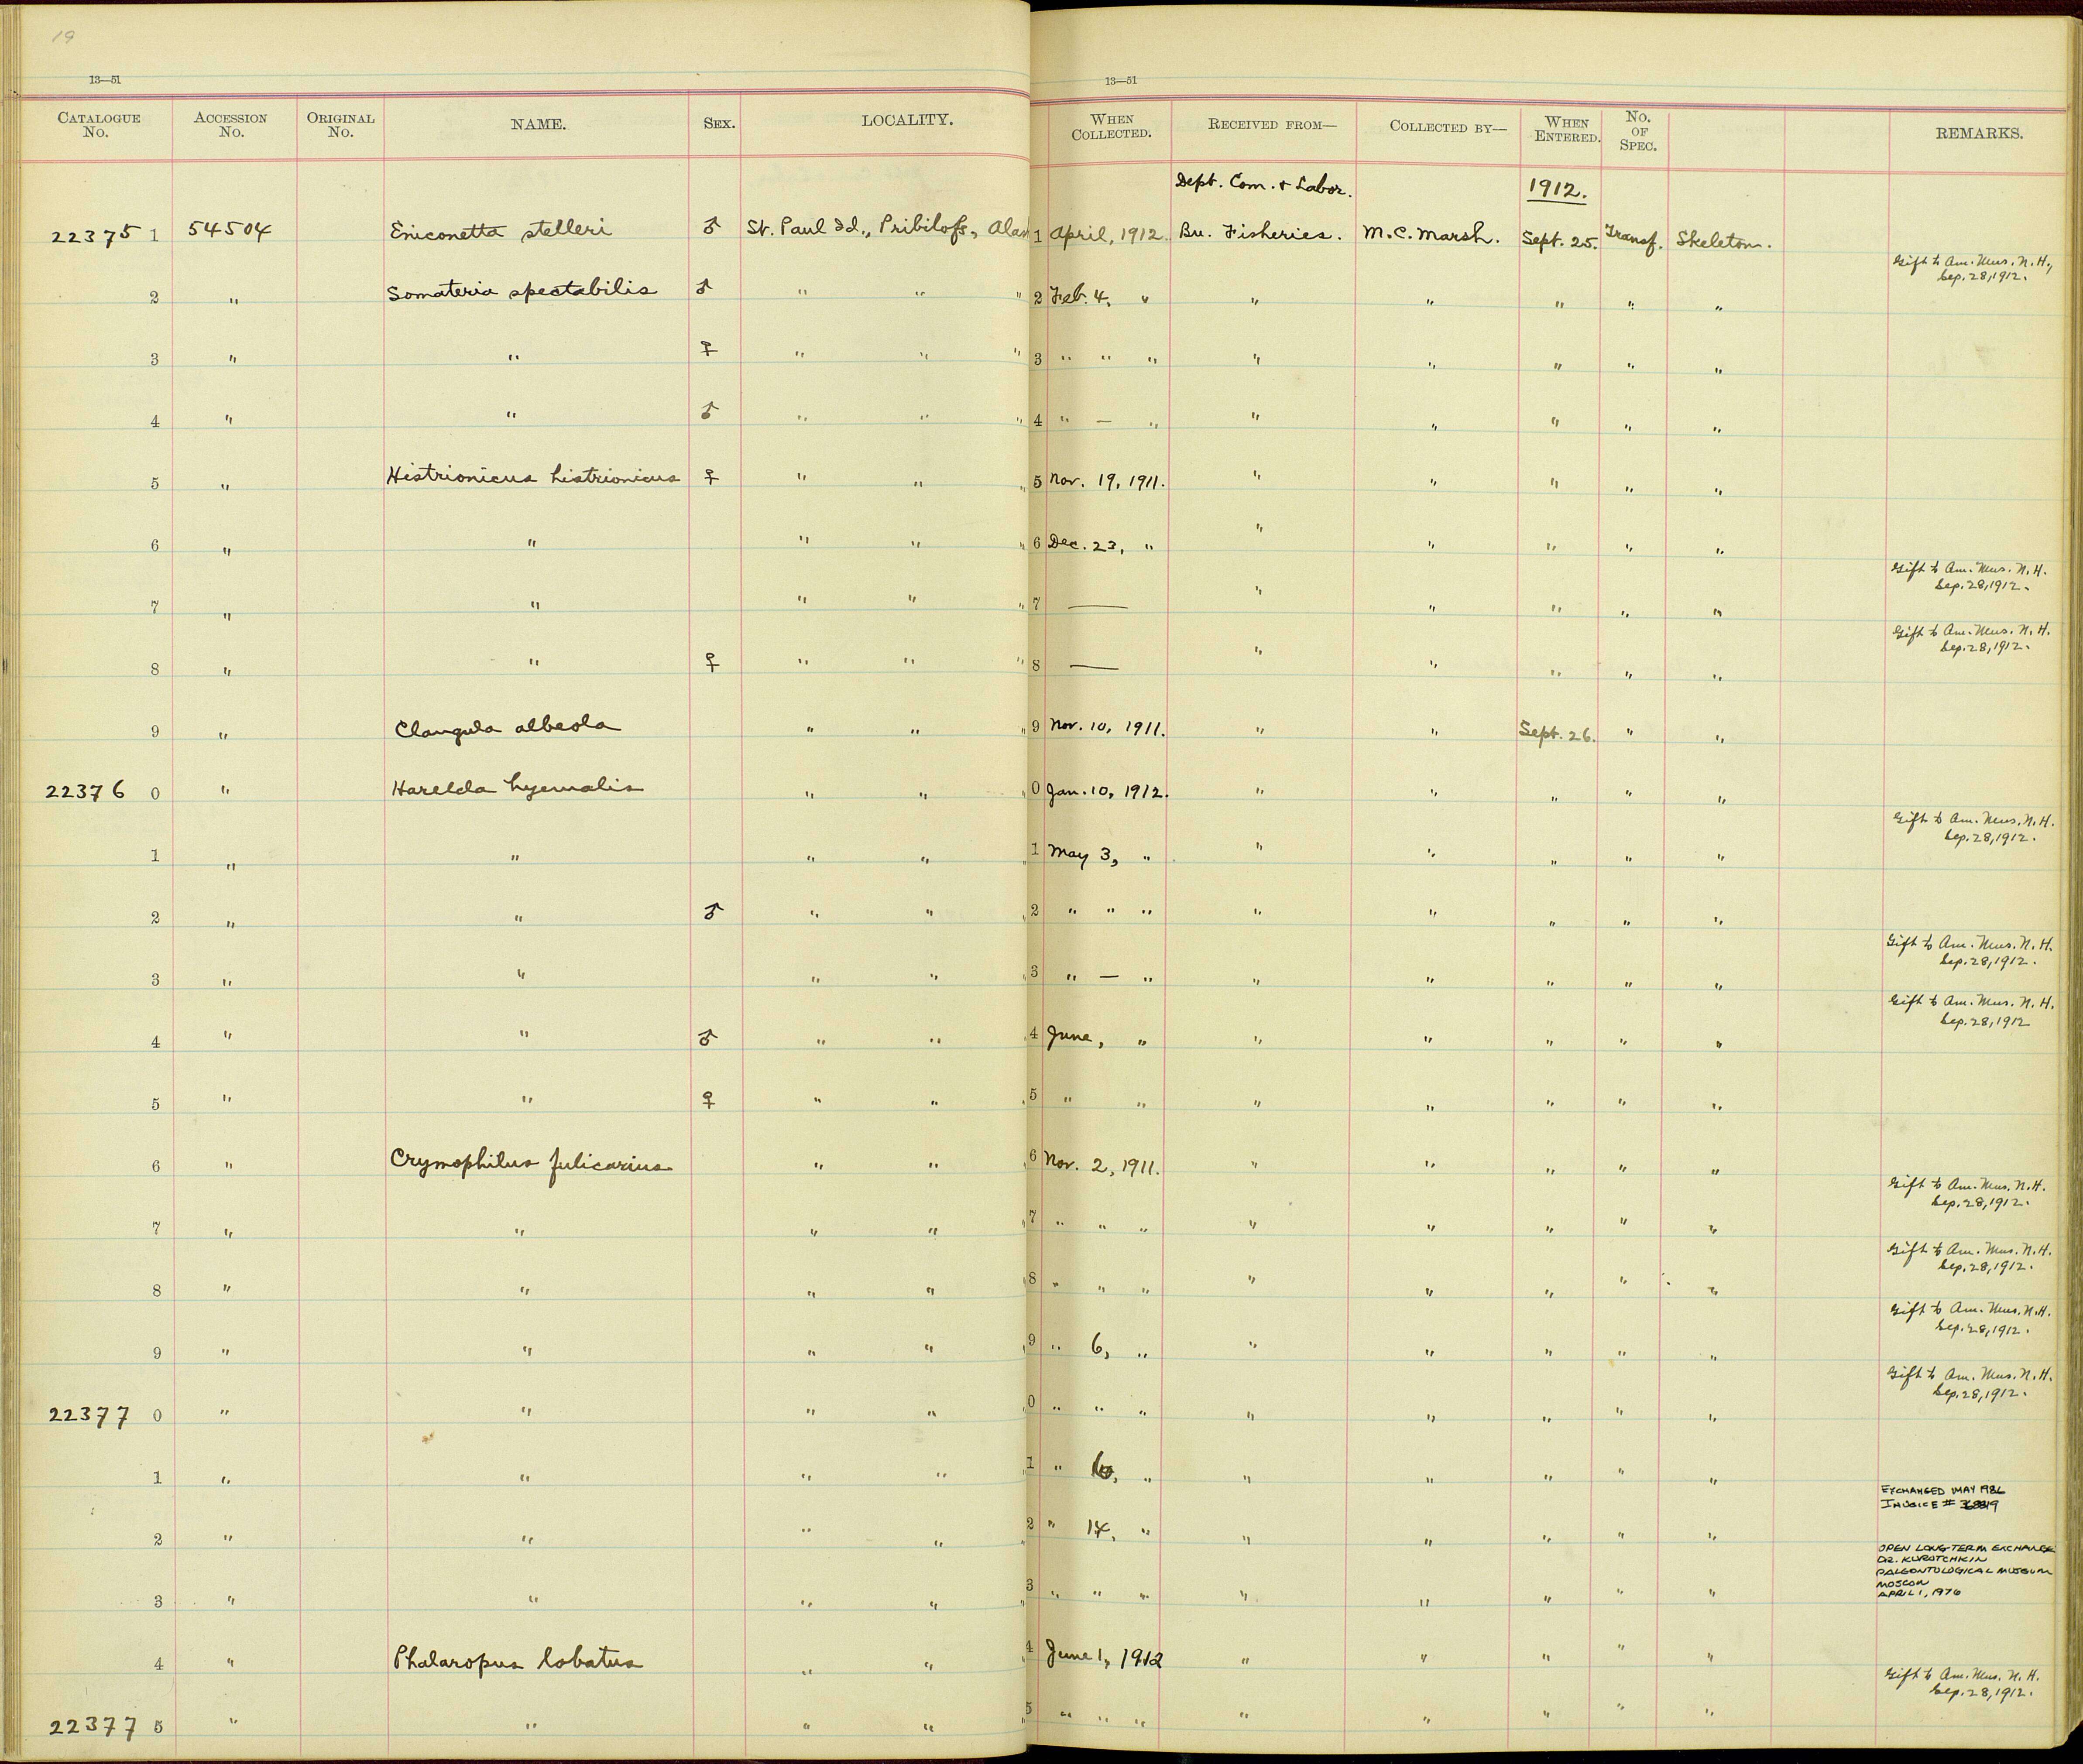 19
13—51
13—51
CATALOGUE No. ACCESSION No. ORIGINAL No. NAME. SEX. LOCALITY. WHEN COLLECTED. RECEIVED FROM— COLLECTED BY— WHEN ENTERED. No. OF SPEC. REMARKS.
Dept. Com. & Labor. 1912.
22375 1 54504 Eniconetta stelleri ♂ St. Paul Id., Pribilofs, Alas 1 April, 1912. Bu. Fisheries. M.C. Marsh. Sept. 25. Transf. Skeleton.
Gift to Am. Mus. N.H., Sep. 28, 1912.
2 " Somateria spectabilis ♂ " " " 2 Feb. 4, " " " " " "
3 " " ♀ " " " 3 " " " " " " " "
4 " " ♂ " " " 4 " — " " " " " "
5 " Histrionicus histrionicus ♀ " " " 5 Nov. 19, 1911. " " " " "
6 " " " " " 6 Dec. 23, " " " " " "
Gift to Am. Mus. N.H. Sep. 28, 1912.
7 " " " " " 7 — " " " " "
Gift to Am. Mus. N.H. Sep. 28, 1912.
8 " " ♀ " " " 8 — " " " " "
9 " Clangula albeola " " " 9 Nov. 10, 1911. " " Sept. 26. " "
22376 0 " Harelda hyemalis " " " 0 Jan. 10, 1912. " " " " "
Gift to Am. Mus. N.H. Sep. 28, 1912.
1 " " " " " 1 May 3, " " " " " "
2 " " ♂ " " " 2 " " " " " " " "
Gift to Am. Mus. N.H. Sep. 28, 1912.
3 " " " " " 3 " — " " " " " "
Gift to Am. Mus. N.H. Sep. 28, 1912
4 " " ♂ " " " 4 June, " " " " " "
5 " " ♀ " " " 5 " " " " " " "
6 " Crymophilus fulicarius " " " 6 Nov. 2, 1911. " " " " "
Gift to Am. Mus. N.H. Sep. 28, 1912.
7 " " " " " 7 " " " " " " " "
Gift to Am. Mus. N.H. Sep. 28, 1912.
8 " " " " " 8 " " " " " " " "
Gift to Am. Mus. N.H. Sep. 28, 1912.
9 " " " " " 9 " 6, " " " " " "
Gift to Am. Mus. N.H. Sep. 28, 1912.
22377 0 " " " " " 0 " " " " " " " "
1 " " " " " 1 " " " " " " "
EXCHANGED MAY
INVOICE #
2 " " " " " 2 " 14, " " " " " "
OPEN LONG-TERM EXCHANGE
DR. KUROTCHKIN
PALEONTOLOGICAL MUSEUM
MOSCOW
APRIL 1, 1976
3 " " " " " 3 " " " " " " " "
4 " Phalaropus lobatus " " " 4 June 1, 1912 " " " " "
Gift to Am. Mus. N.H. Sep. 28, 1912.
22377 5 " " " " " 5 " " " " " " " "